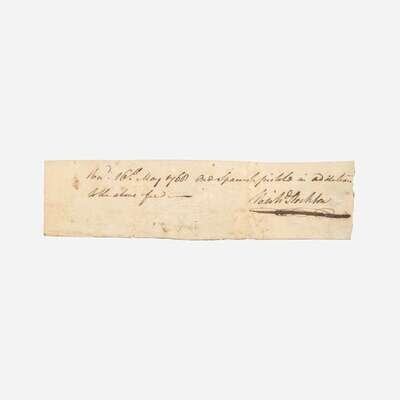 Rec.d 16th. May 1768 one Spanish pistole in addition
to the above fee —
Rich.d Stockton